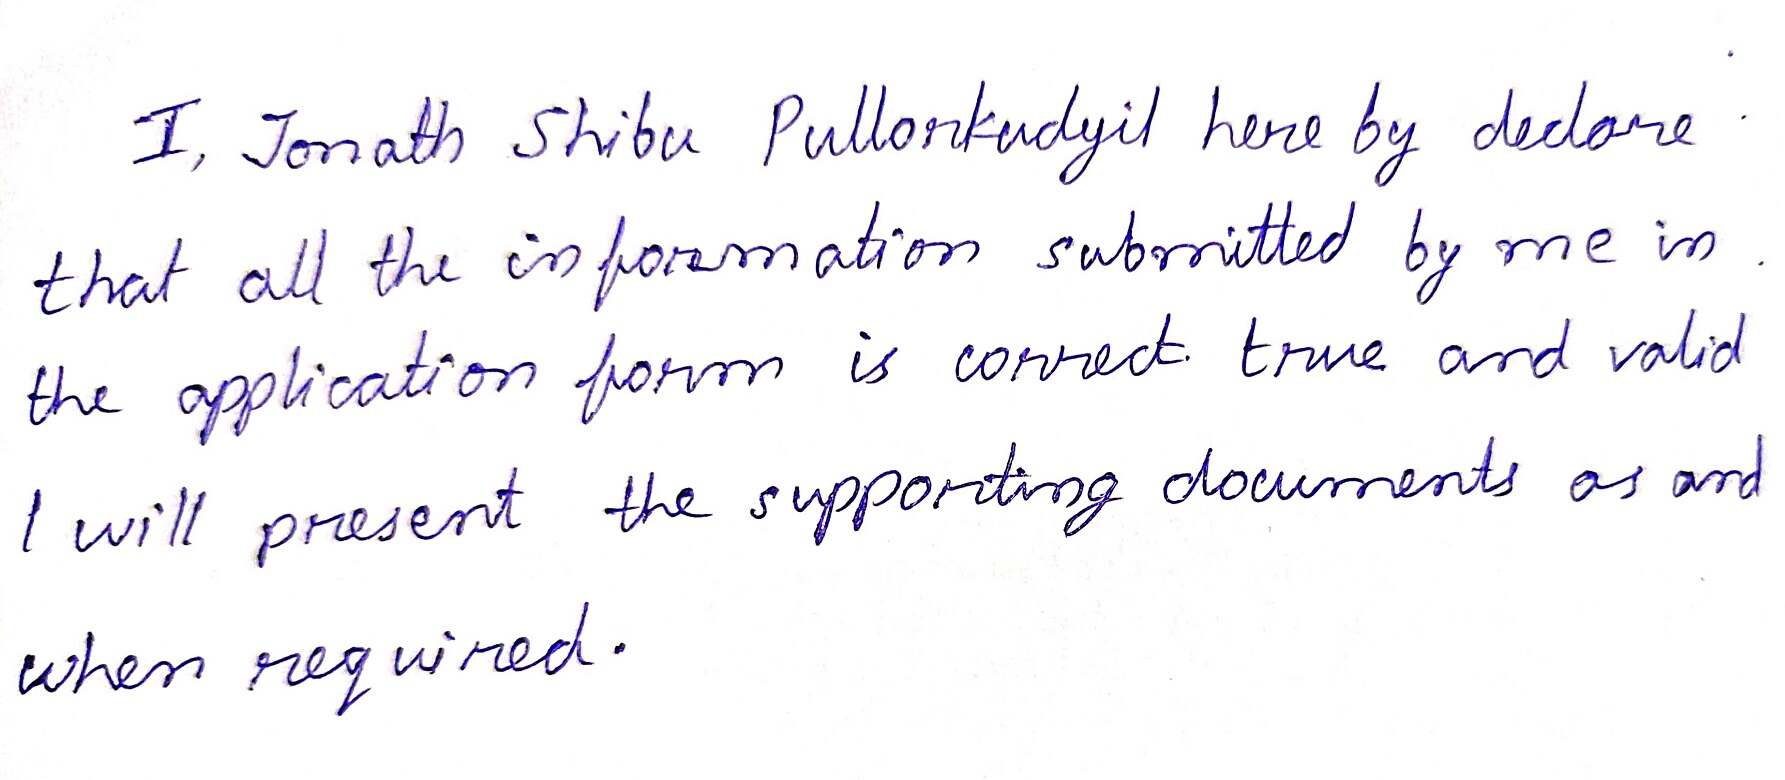 I, Jonath Shibu Pullorkudyil here by declare
that all the information submitted by me in
the application form is correct true and valid
I will present the supporting documents as and
when required.